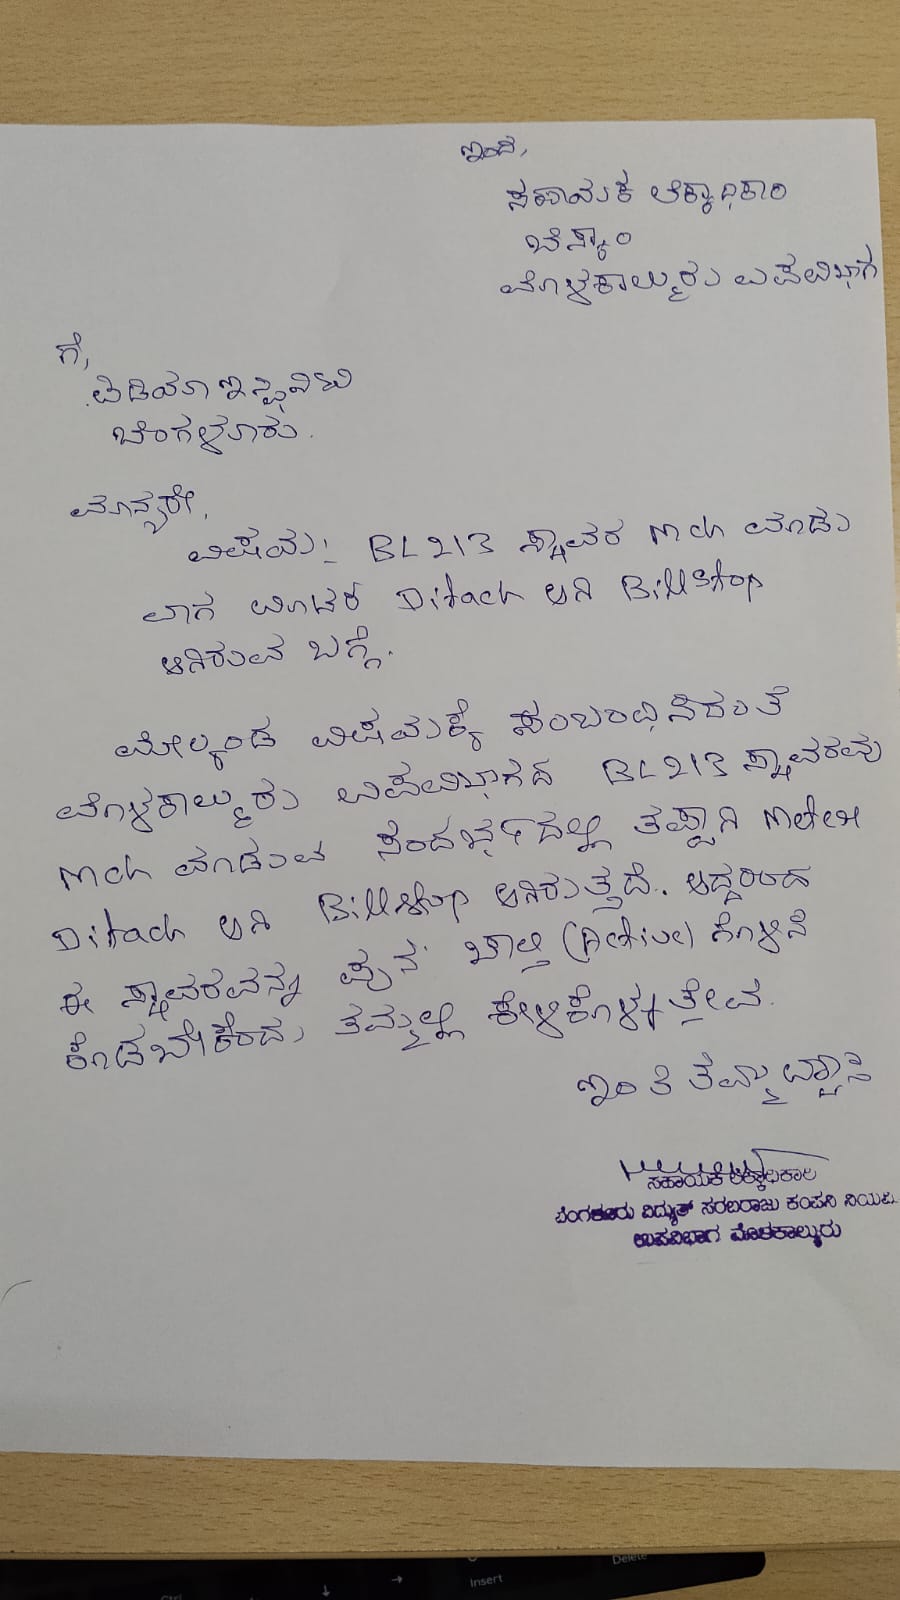 ಇಂದ,
ಸಹಾಯಕ ಲೆಕ್ಕಾಧಿಕಾರಿ
ಬೆಸ್ಕಾಂ
ಮೊಳಕಾಲ್ಮೂರು ಉಪವಿಭಾಗ
ಗೆ,
ಬೆಂಗಳೂರು.
ಮಾನ್ಯರೇ,
ವಿಷಯ:- BL213 ಸ್ಥಾವರ Mch ಮಾಡು
ವಾಗ ಮೀಟರ Ditach ಆಗಿ Billstop
ಆಗಿರುವ ಬಗ್ಗೆ.
ಮೇಲ್ಕಂಡ ವಿಷಯಕ್ಕೆ ಸಂಬಂಧಿಸಿದಂತೆ
ಮೊಳಕಾಲ್ಮೂರು ಉಪವಿಭಾಗದ BL213 ಸ್ಥಾವರವು
Mch ಮಾಡುವ ಸಂದರ್ಭದಲ್ಲಿ ತಪ್ಪಾಗಿ Meter
Ditach ಆಗಿ Billstop ಆಗಿರುತ್ತದೆ. ಆದ್ದರಿಂದ
ಈ ಸ್ಥಾವರವನ್ನು ಪುನಃ ಚಾಲ್ತಿ (Active) ಗೊಳಿಸಿ
ಕೊಡಬೇಕೆಂದು ತಮ್ಮಲ್ಲಿ ಕೇಳಿಕೊಳ್ಳುತ್ತೇವೆ.
ಇಂತಿ ತಮ್ಮ ವಿಶ್ವಾಸಿ
ಸಹಾಯಕ ಲೆಕ್ಕಾಧಿಕಾರಿ
ಬೆಂಗಳೂರು ವಿದ್ಯುತ್ ಸರಬರಾಜು ಕಂಪನಿ ನಿಯಮಿತ
ಉಪವಿಭಾಗ ಮೊಳಕಾಲ್ಮೂರು
Delete
Insert